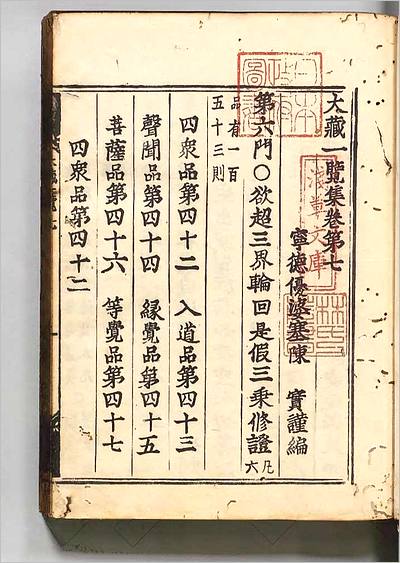 大藏一覽集卷第七
寧德優婆塞陳　實謹編
第六門〇欲超三界輪回是假三乘修證凡六
品有一百
五十三則
四衆品第四十二　入道品第四十三
聲聞品第四十四　緣覺品第四十五
菩薩品第四十六　等覺品第四十七
四衆品第四十二
淺草文庫